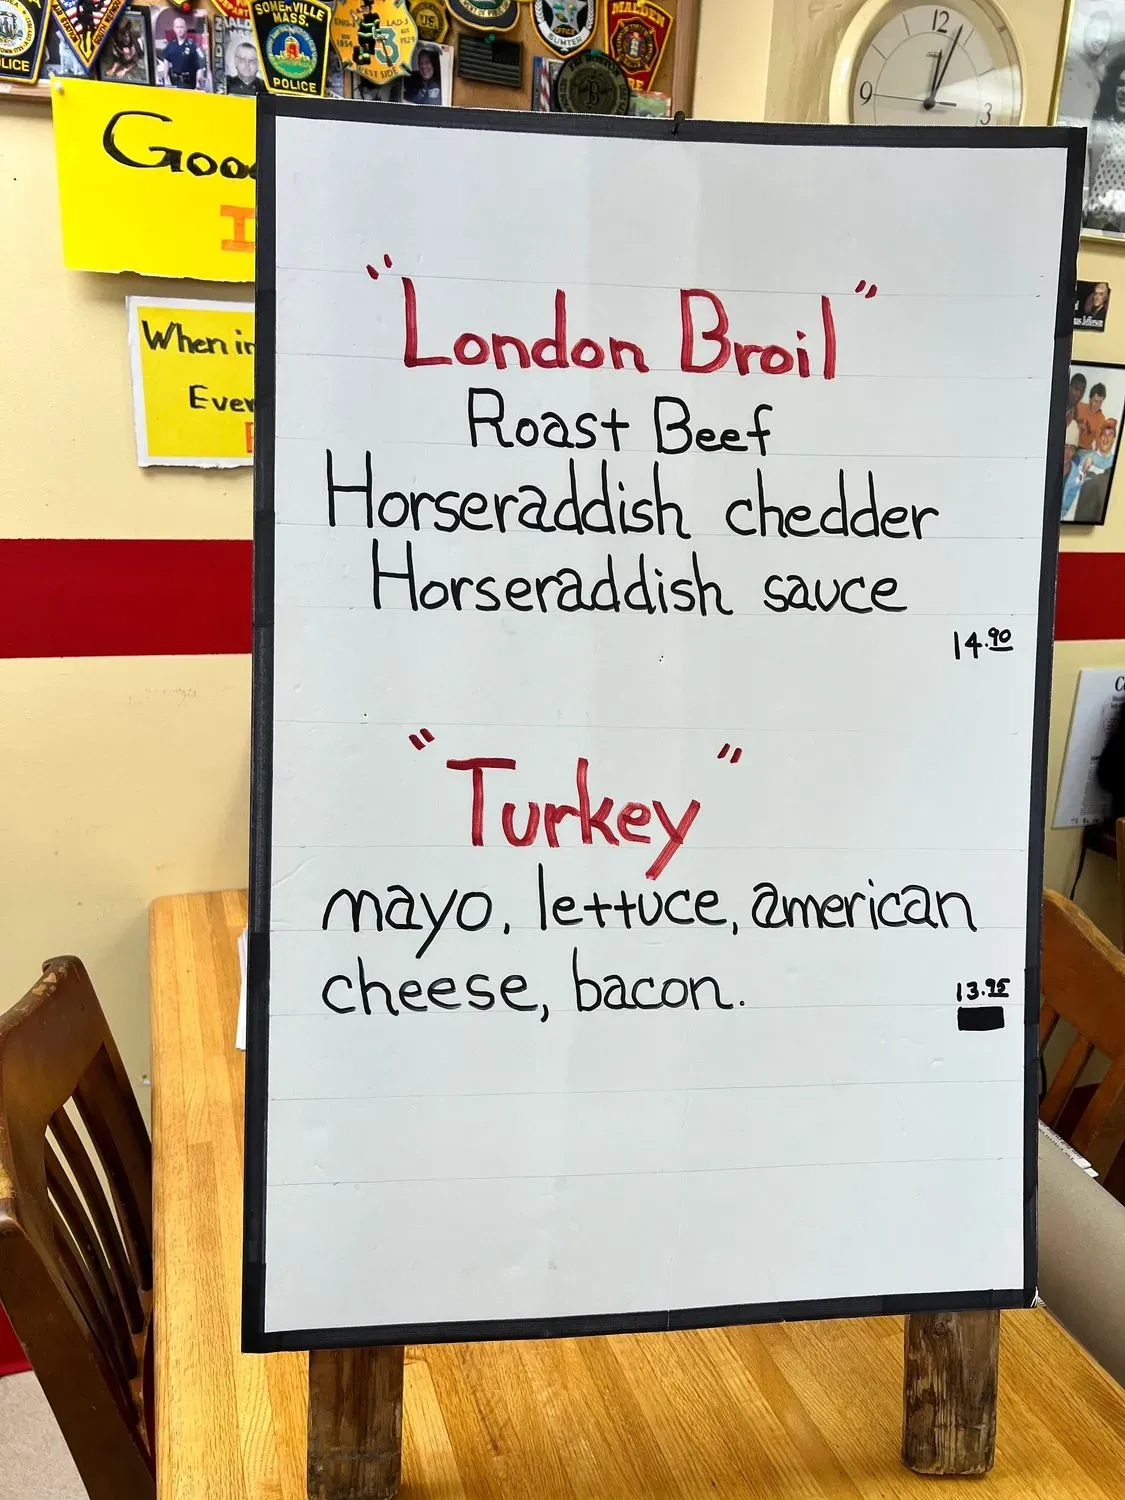 SOMERVILLE
MASS.
POLICE
LAD-3
WEST SIDE
SUMTER
MALDEN
12
9
3
When in
"London Broil"
Roast Beef
Horseraddish chedder
Horseraddish sauce
14.90
"Turkey"
mayo, lettuce, american
cheese, bacon.
13.95